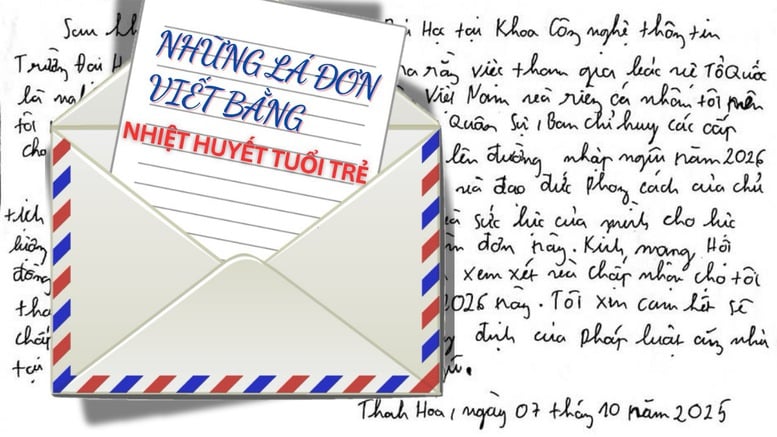 NHỮNG LÁ ĐƠN
VIẾT BẰNG
NHIỆT HUYẾT TUỔI TRẺ
Sau Học tại Khoa Công nghệ thông tin
Trường Đại rằng việc tham gia bảo vệ Tổ Quốc
là Việt Nam và riêng cá nhân tôi nên
tôi Quân Sự, Ban chỉ huy các cấp
cho lên đường nhập ngũ năm 2026
và đạo đức phong cách của chủ
tích và sức lực của mình cho lực
lượng đơn này. Kính mong Hội
đồng xem xét và chấp nhận cho tôi
tha 2026 này. Tôi xin cam kết sẽ
chấp định của pháp luật cũng như
tại
Thanh Hoá, ngày 07 tháng 10 năm 2025